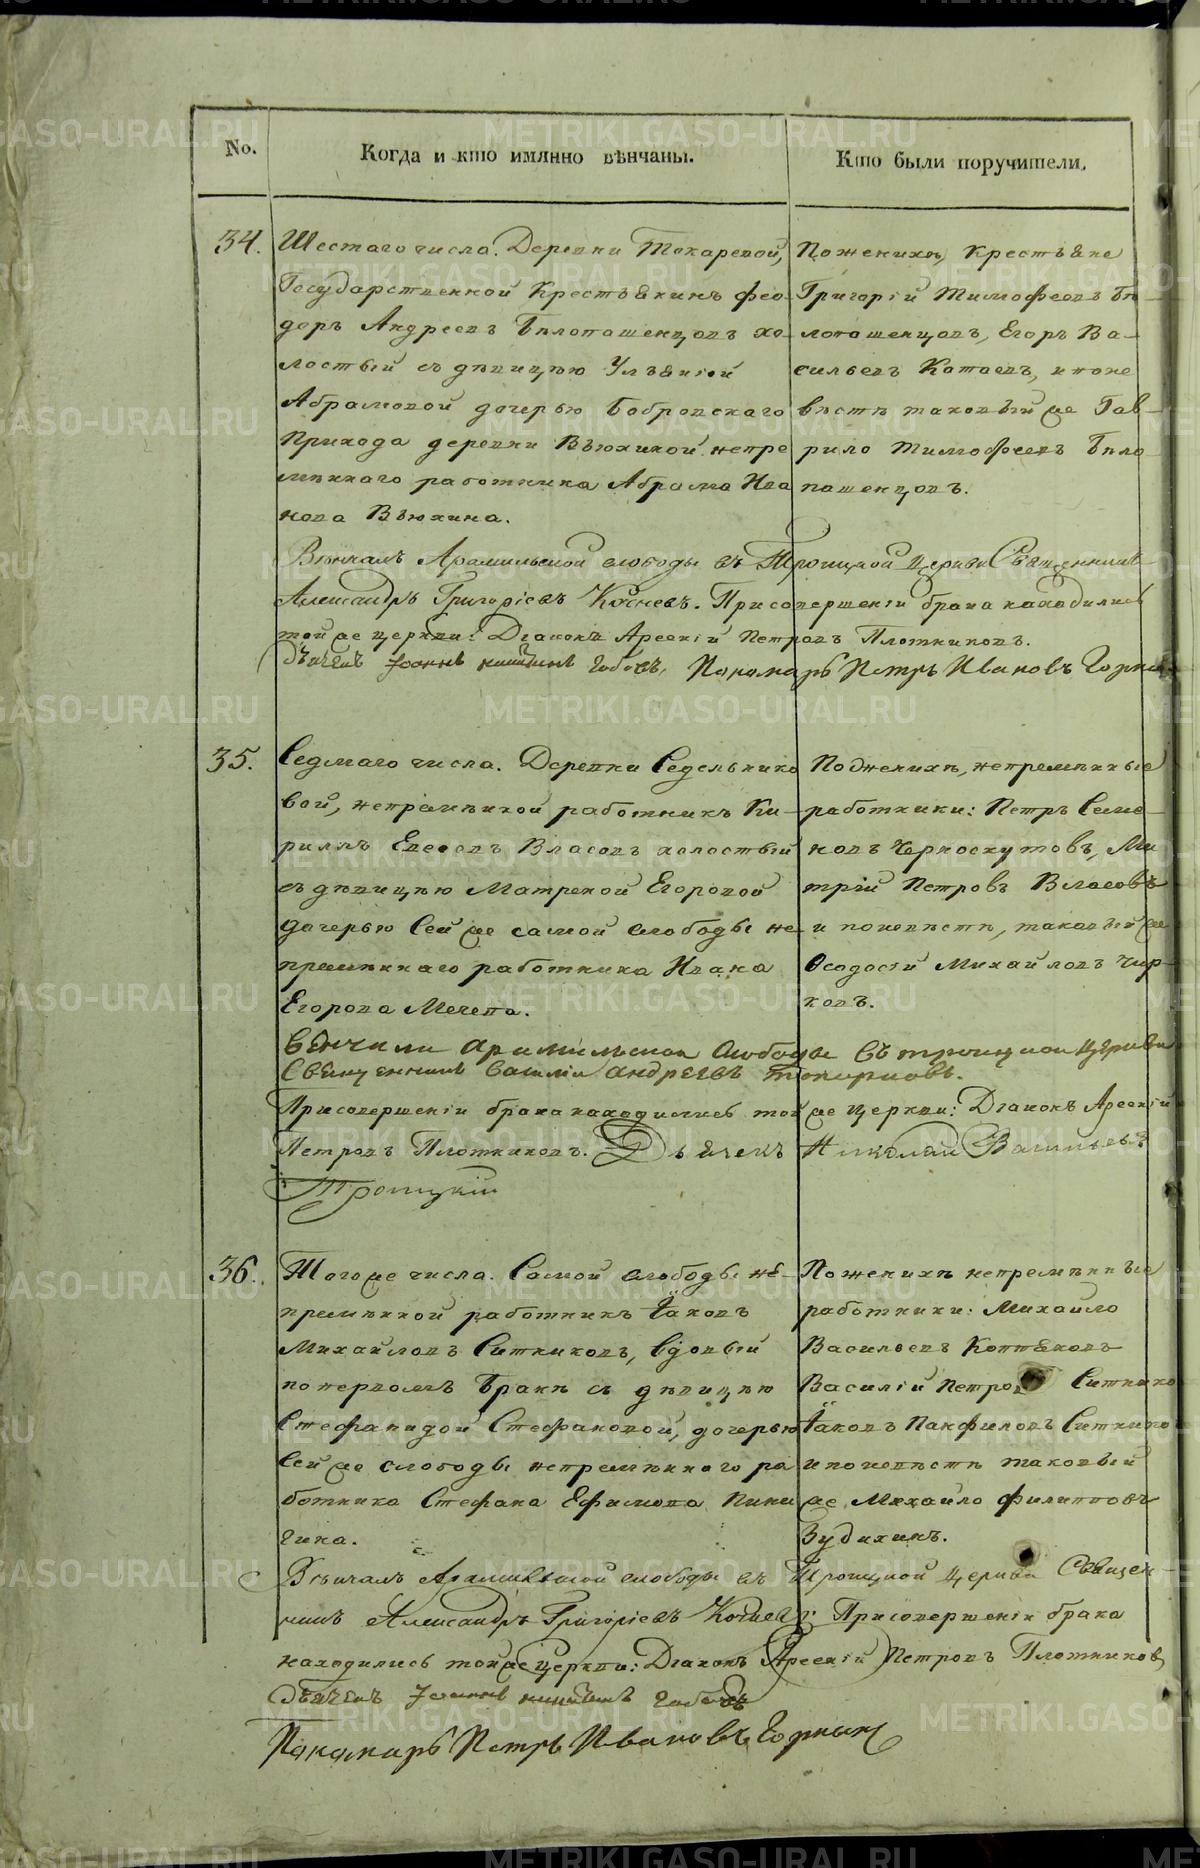 No.
Когда и кто имянно вѣнчаны.
Кто были поручители.
34.
Шестаго числа. Деревни Токаревой,
Государственной Крестьянинъ Фео-
доръ Андреевъ Бѣлопашенцовъ хо-
лостый съ дѣвицею Ульяніей
Абрамовой дочерью Бобровскаго
Прихода деревни Вьюхиной непре
мѣннаго работника Абрама Ива
нова Вьюхина.
Поженихѣ, Крестьяне
Григорій Тимофеевъ Бѣ-
лопашенцовъ, Егоръ Ва-
сильевъ Катаевъ, и поне
вѣстѣ таковый же Гав-
рило Тимофеевъ Бѣло
пашенцовъ.
Вѣнчалъ Арамильской слободы въ Троицкой церкви Священникъ
Александръ Григоріевъ Присовершеніи брака находились
той же церкви: Діаконъ Арсеній Петровъ Плотниковъ.
Дьячекъ Іоаннъ Никитинъ Пономарь Петръ Ивановъ
35.
Седмаго числа. Деревни Седельнико
вой, непремѣнной работникъ Ки-
риллъ Евсеевъ Власовъ холостый
съ дѣвицею Матреной Егоровой
дочерью Сей же самой слободы не-
премѣннаго работника Ивана
Егорова Мечева.
Поженихѣ, непремѣнные
работники: Петръ Семе-
новъ Черноскутовъ, Ми
трій Петровъ Власовъ
и поневѣстѣ, таковый же
Ѳеодосій Михайловъ Чир-
ковъ.
Вѣнчали Арамильской слободы въ троицкой церкви
Священникъ Василій Андреевъ
Присовершеніи брака находились той же церкви: Діаконъ Арсеній
Петровъ Плотниковъ. Дьячекъ Николай Васильевъ
Троицкій
36.
Того же числа. Самой слободы не-
премѣнной работникъ Іаковъ
Михайловъ Ситниковъ, вдовый
попервомъ бракѣ съ дѣвицею
Стефанидой Стефановой, дочерью
Сей же слободы непремѣннаго ра
ботника Стефана Ефимова Пини
гина.
Поженихѣ непремѣнные
работники: Михайло
Васильевъ Коптяковъ
Василій Петров Ситнико
Іаковъ Панфиловъ Ситнико
и поневѣстѣ таковый
же, Михайло Филипповъ
Зудихинъ.
Вѣнчалъ Арамильской слободы въ Троицкой церкви Священ-
никъ Александръ Григоріевъ Присовершеніи брака
находились той же церкви: Діаконъ Арсеній Петровъ Плотниковъ,
Дьячекъ Іоаннъ Никитинъ
Пономарь Петръ Ивановъ
METRIKI.GASO-URAL.RU